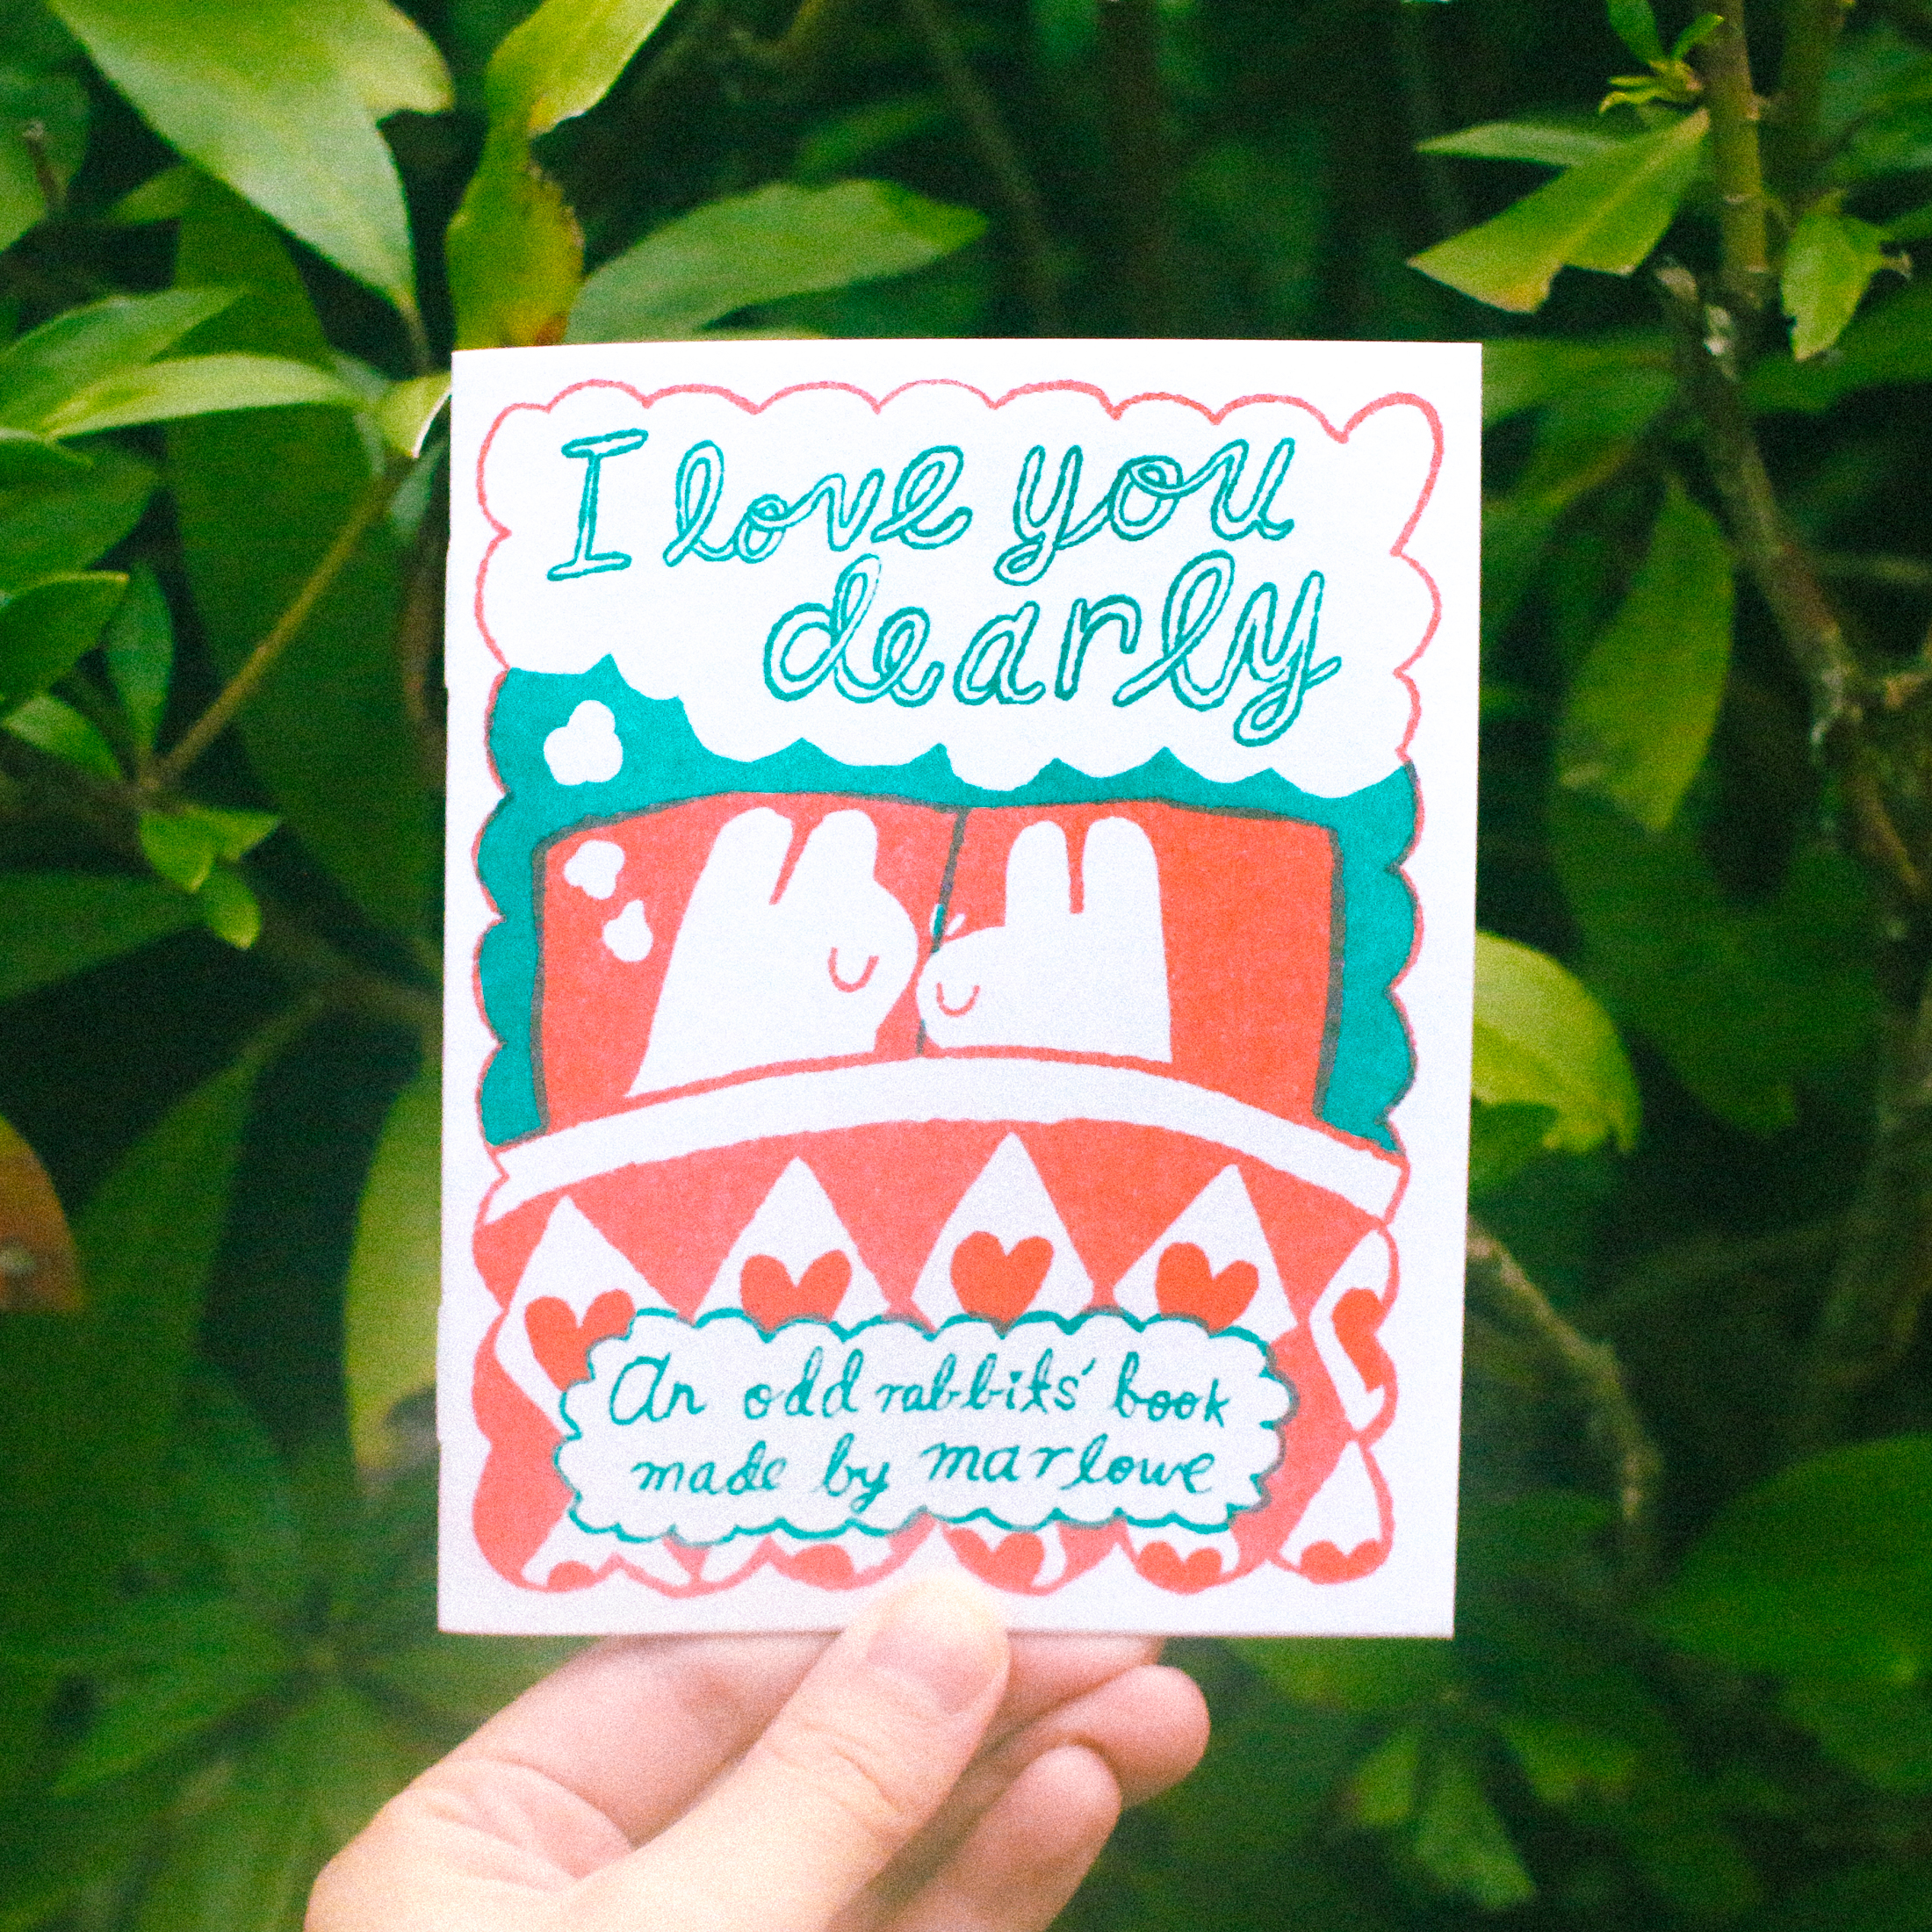 I love you
dearly
An odd rabbits' book
made by marlowe